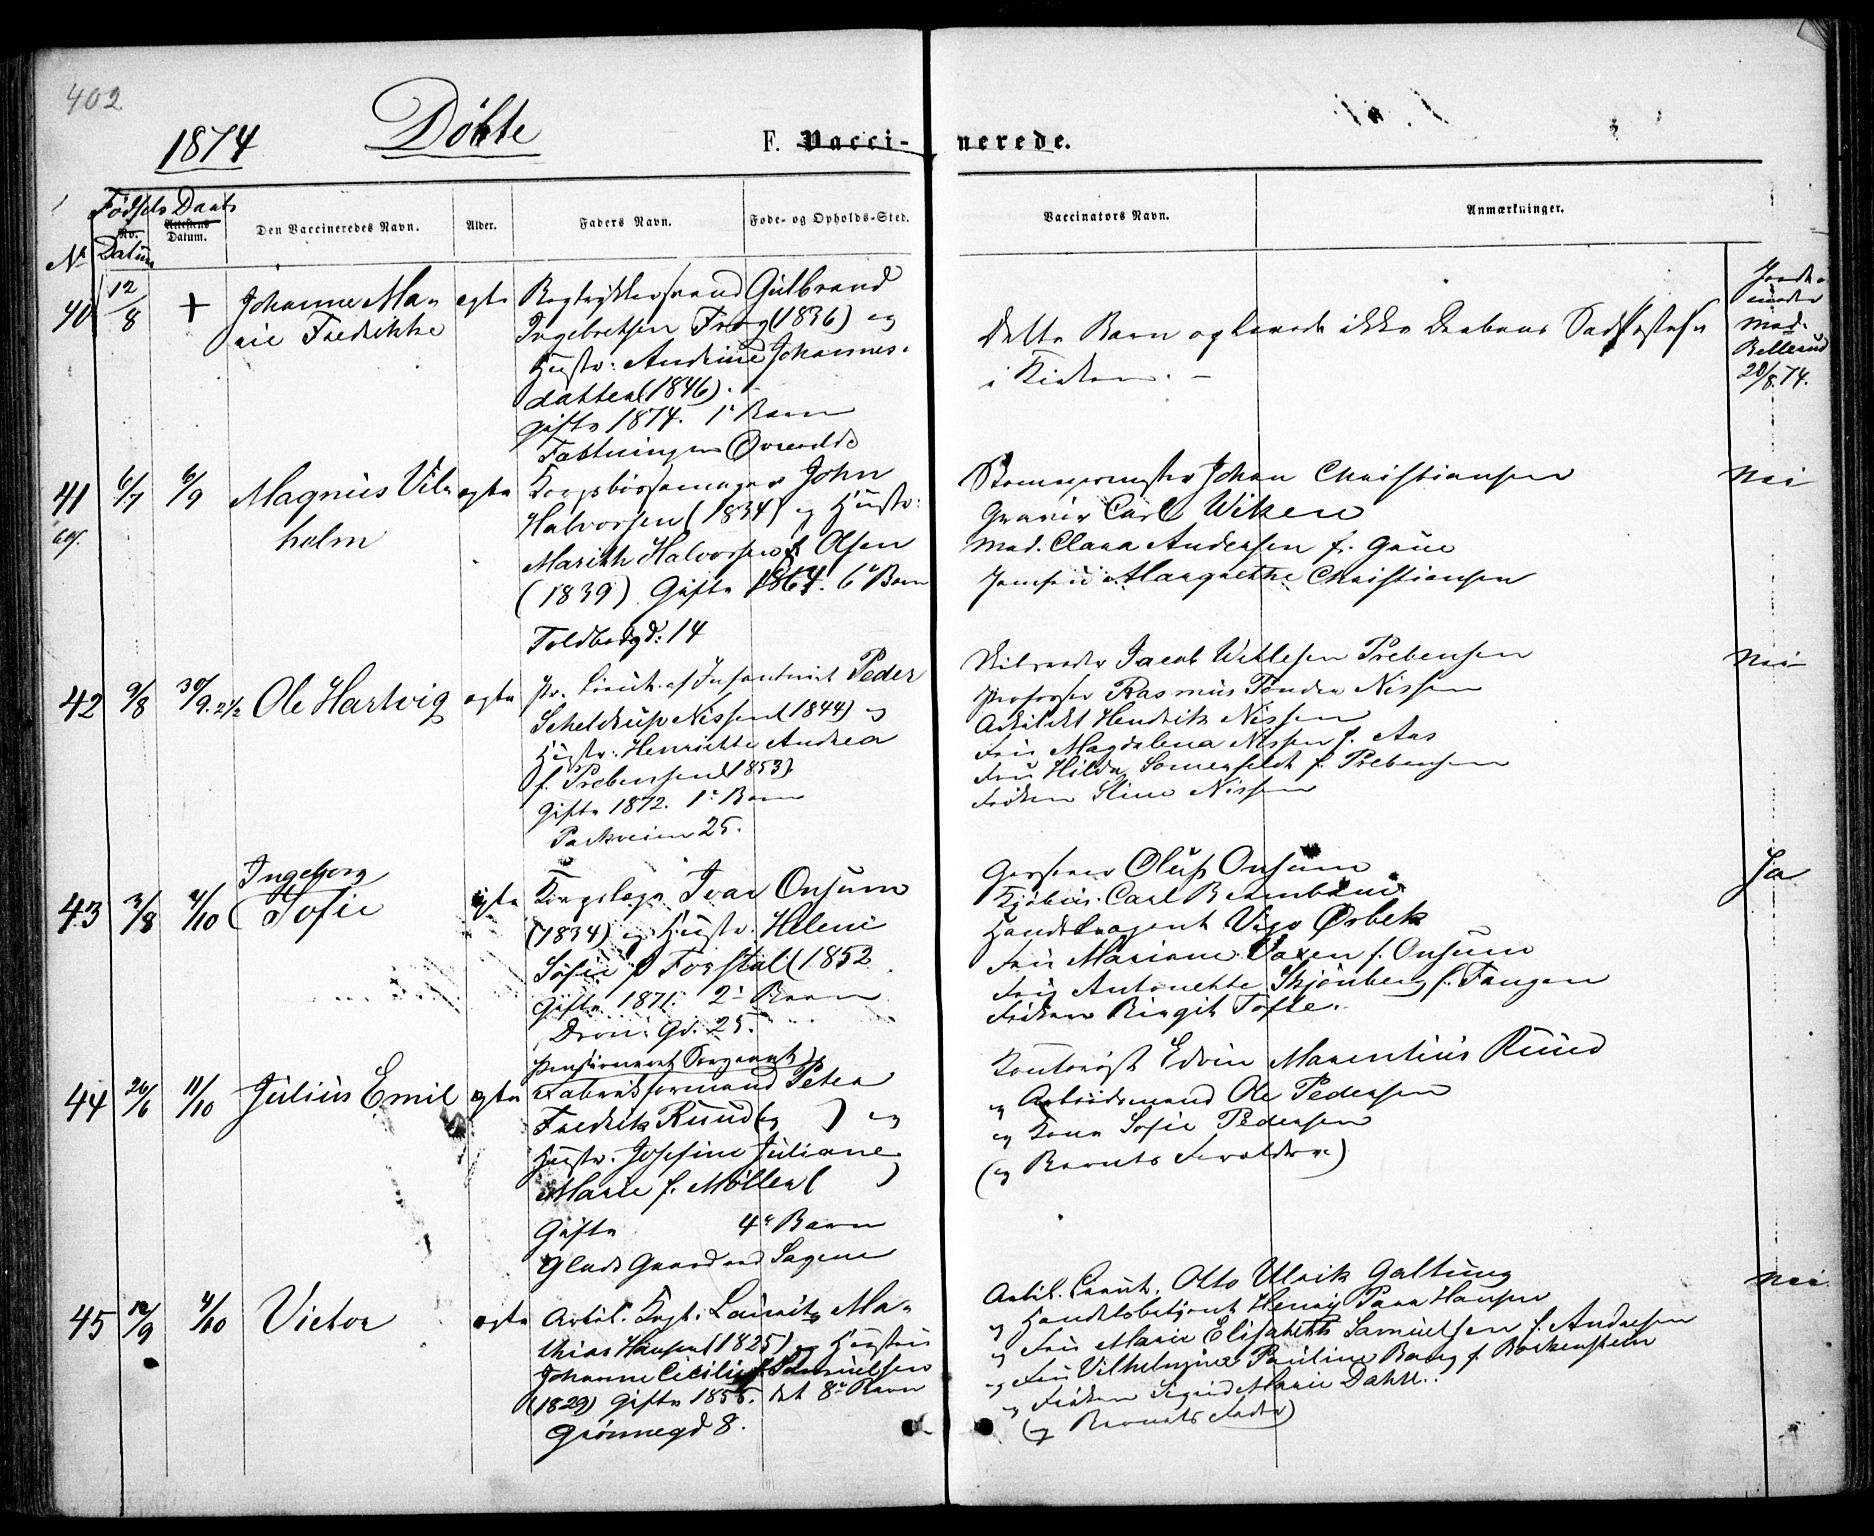 402
1874 Döbte F. Vacci-nerede.
Fødsels Daabs
No. Attestens Datum. Den Vaccineredes Navn. Alder. Faders Navn. Føde- og Opholds-Sted. Vaccinators Navn. Anmærkninger.
Nr Datum
40 12/8 + Johanne Ma-
rie Fredrikke
egte Gulbrand
Ingebretsen Frog (1836) og
Hustr: Andrine Johannes-
datter (1846).
gifte 1874. 1e Barn
Fæstningen Overalde
Dette Barn oplevede ikke Daabens
i Kirken. –
Jorde-
moder
Mad.
Bellerud
28/8 74.
41 6/7 6/9 Magnus Vil-
holm
egte John
Halvorsen (1834) og Hustr:
Marith Halvorsen f. Olsen
(1839) Gifte 1864. 6e Barn
Toldbodgd: 14
Johan Christiansen
Gravør Carl Wiken
Mad. Clara Andersen f.
Jomfru Margrethe Christiansen
Nei
42 9/8 30/9. 2½ Ole Hartvig egte
Pr. Lieut. af Infanteriet Peder
Scheldrup Nissen (1844) og
Hustr: Henriette Andrea
f. Prebensen (1853)
Gifte 1872. 1e Barn
Parkveien 25.
Jacob Wetlesen Prebensen
Professor Rasmus Tønder Nissen
Arkitekt Hendrik Nissen
Fru Magdalena Nissen f. Aas
Fru Hilda Somerfeldt f. Prebensen
Frøken Stine Nissen
Nei
43 3/8 4/10 Ingeborg
Sofie
egte
Korpslæge Ivar Onsum
(1834) og Hustr. Helene
Sofie f. Forstal (1852
Gifte 1871. 2e Barn
Dron: Gd. 25.
Oluf Onsum
Kjøbm. Carl
Handelsagent Vigo Ørbek
Fru Mariane Vaxen f. Onsum
Fru Antonette Skjönberg f. Tangen
Frøken Birgit Tofte.
Ja
44 26/6 11/10 Julius Emil egte
pensioneret Sergeant
Fabrikformand Peter
Fredrik Ruud ( ) og
Hustr. Josefine Juliane
Marie f. Möller ( )
Gifte 4e Barn
Glads Gaard ved Sagene
Kontorist Edvin Marentius Ruud
og Arbeidsmand Ole Pedersen
og Kone Sofie Pedersen
(og Barnets Forældre)
45 12/9 4/10 Victor egte
Artil. Kapt. Lauritz Ma-
thias Hansen (1825) og Hustru
Johanne Cicilie f. Samuelsen
(1829) gifte 1855. det 8e Barn
Grønnegd 8.
Artil. Lieut. Otto Ulrik Galtung
og Handelsbetjent Henrig Hansen
og Fru Marie Elisabeth Samuelsen f. Andresen
og Fru Vilhelmine Pauline Bang f. Borkenstein
og Frøken Sigrid Marie Dahll.
(og Barnets Fader)
Nei